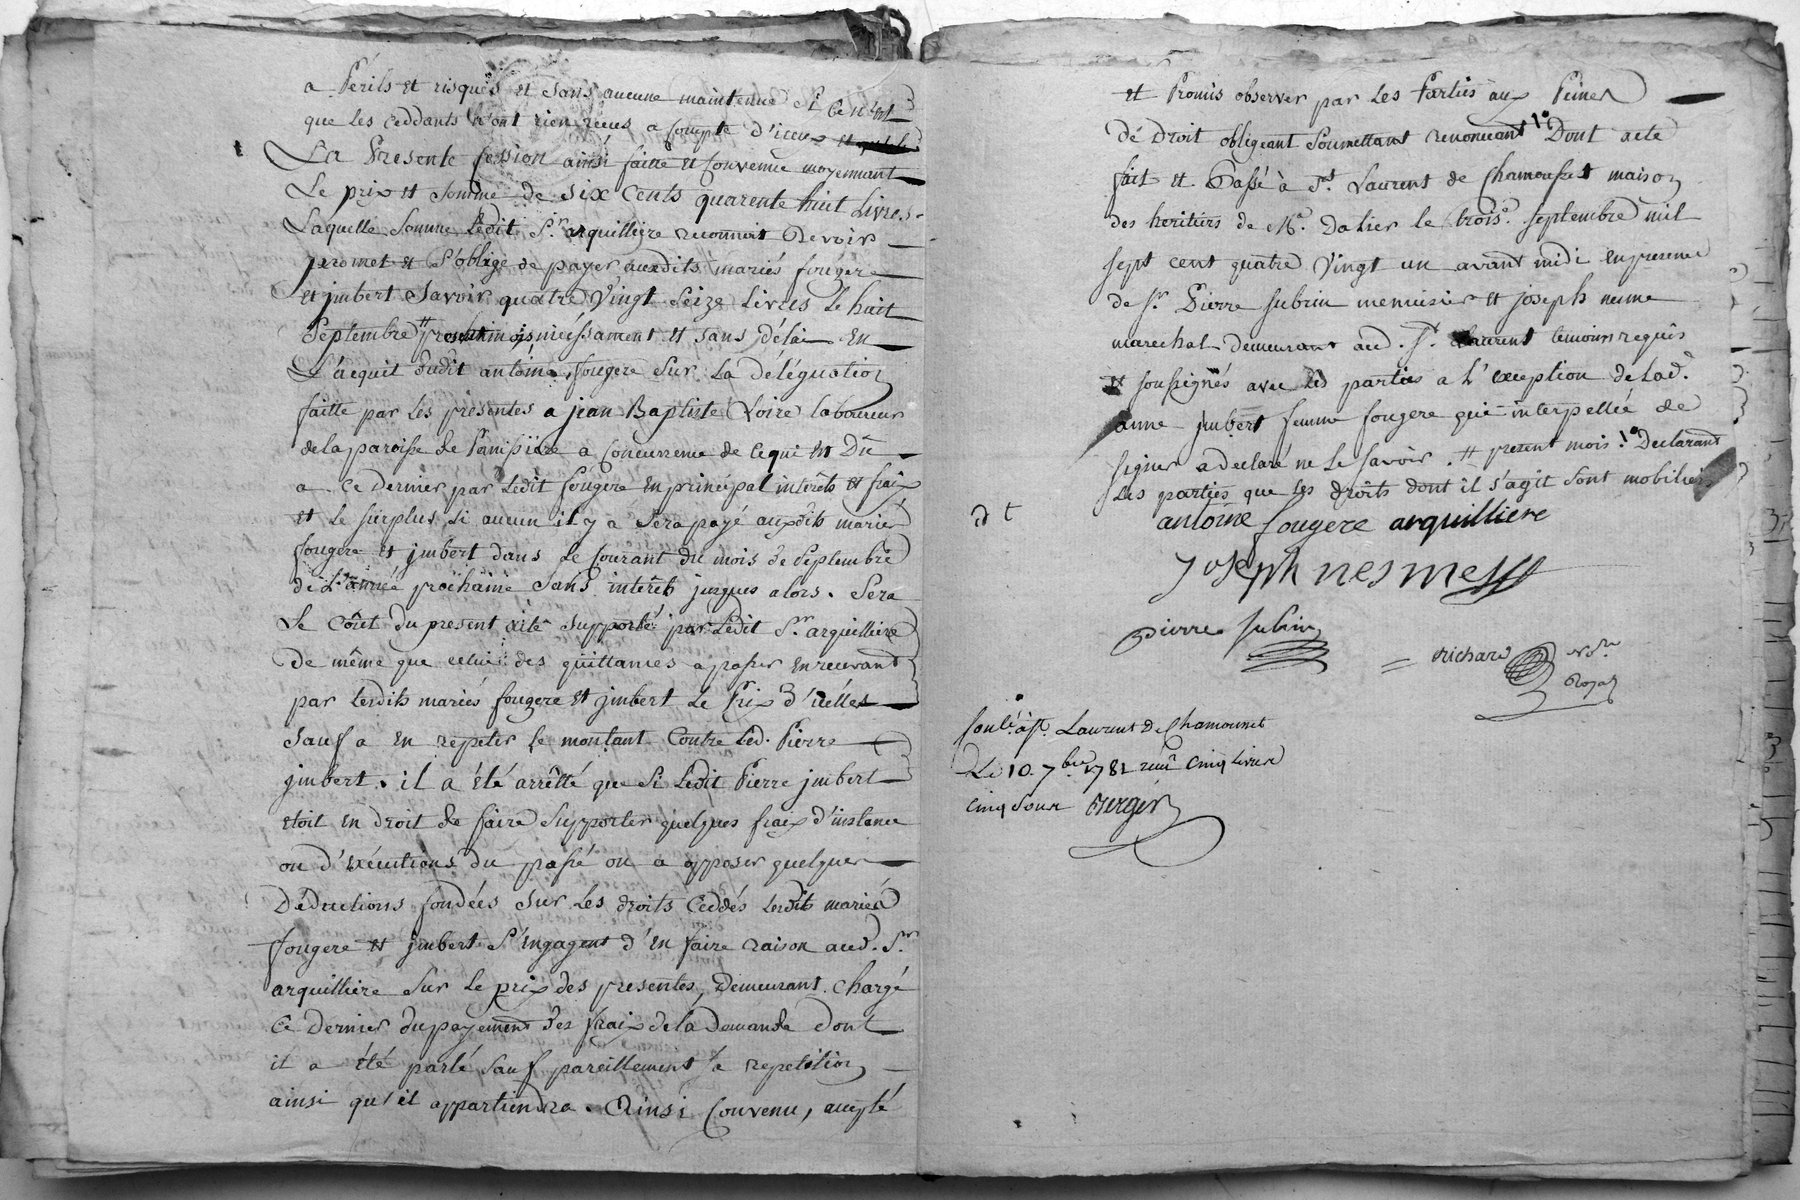 a Périls et risques et sans aucune maintenue Si ce n'est
que les Ceddants n'ont rien reçus a Compte d'iceux et
La Presente Cession ainsi faitte et Convenüe moyennant
Le prix et somme de six cents quarente huit Livres
Laquelle somme Ledit Sr. arquilliere reconnoit Devoir
promet et s'oblige de payer auxdits mariés fougere
et jmbert Savoir quatre Vingt Seize Livres le huit
Septembre # prochain sans délai En
L'acquit dudit antoine fougere sur La déléguation
faitte par les presentes a jean Baptiste Loire laboureur
de la paroisse de Panissiere a Concurrence de ce qui est Dû
a ce dernier par Ledit fougere en principal interêts et frais
et le surplus si aucun il y a sera payé auxdits mariés
fougere et jmbert dans le Courant du mois de Septembre
de L'année prochaine sans interêts jusques alors. Sera
Le Coût du present acte supporté par Ledit Sr. arquilliere
De même que celui des quittances a passer en recevant
par lesdits mariés fougere et jmbert Le Prix d'icelles
Sauf a en repeter le montant Contre led. Pierre
jmbert. il a été arrêtté que Si Ledit Pierre jmbert
etoit en droit de faire Supporter quelques fraix d'instance
ou d'exécutions du passé ou a opposer quelques
Déductions fondées sur les droits Ceddés lesdits mariés
fougere et jmbert s'engagent d'en faire raison aud. Sr.
arquilliere sur le prix des presentes, Demeurant Chargé
Ce dernier du payement des fraix de la Demande dont
il a été parlé sauf pareillement a repetition
ainsi qu'il appartiendra. Ainsi Convenu, accepté
et Promis observer par les Parties aux Peines
de Droit obligeant soumettant renonceant 1° Dont acte
fait et Passé à St. Laurent de Chamousset maison
des heritiers de Me. Dalier le trois. septembre mil
sept cent quatre Vingt un avant midi en presence
de Sr. Pierre Subrin menuisier et joseph neme
marechal demeurant aud. St. Laurent temoins requis
et soussignés avec les parties a L'exception de Lad.
anne jmbert femme fougere qui interpellée de
signer a declaré ne le savoir. # present mois 1° Declarant
Les parties que les droits dont il s'agit sont mobiliers
antoine fougere arquilliere
Joseph nesme
pierre subrin
= Richard
Royal
Laurent de Chamousset
Le 10. 7bre 1781 cinq Livres
cinq sous